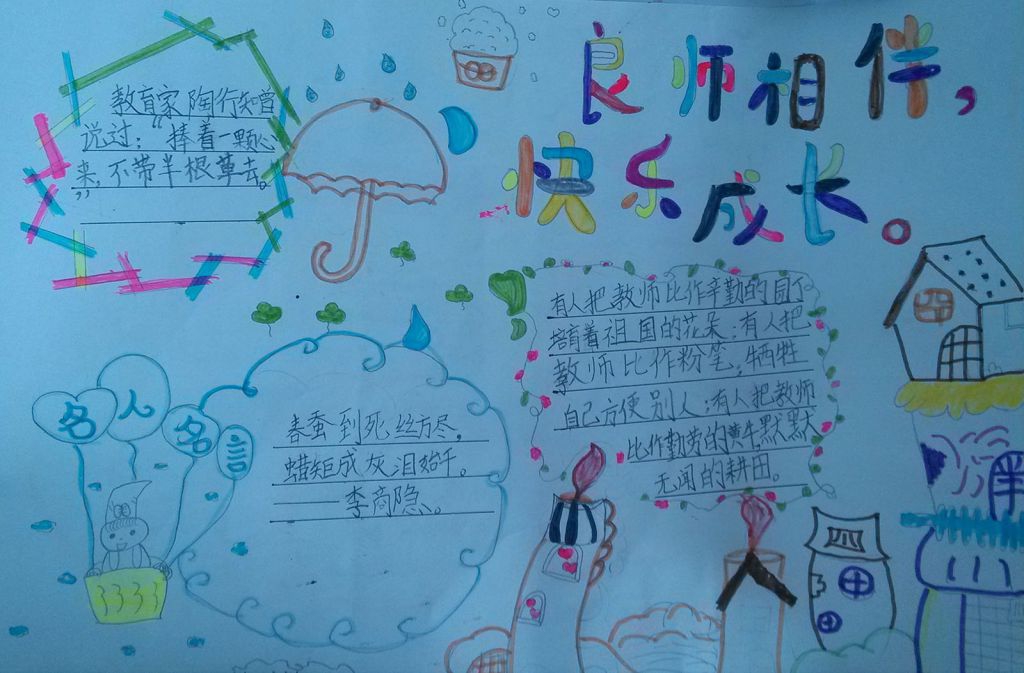 良师相伴，
快乐成长。
教育家陶行知曾
说过：“捧着一颗心
来，不带半根草去。
”
有人把教师比作辛勤的园丁
培育着祖国的花朵；有人把
教师比作粉笔，牺牲
自己方便别人；有人把教师
比作勤劳的黄牛默默
无闻的耕田。
名人名言
春蚕到死丝方尽，
蜡炬成灰泪始干。
——李商隐。